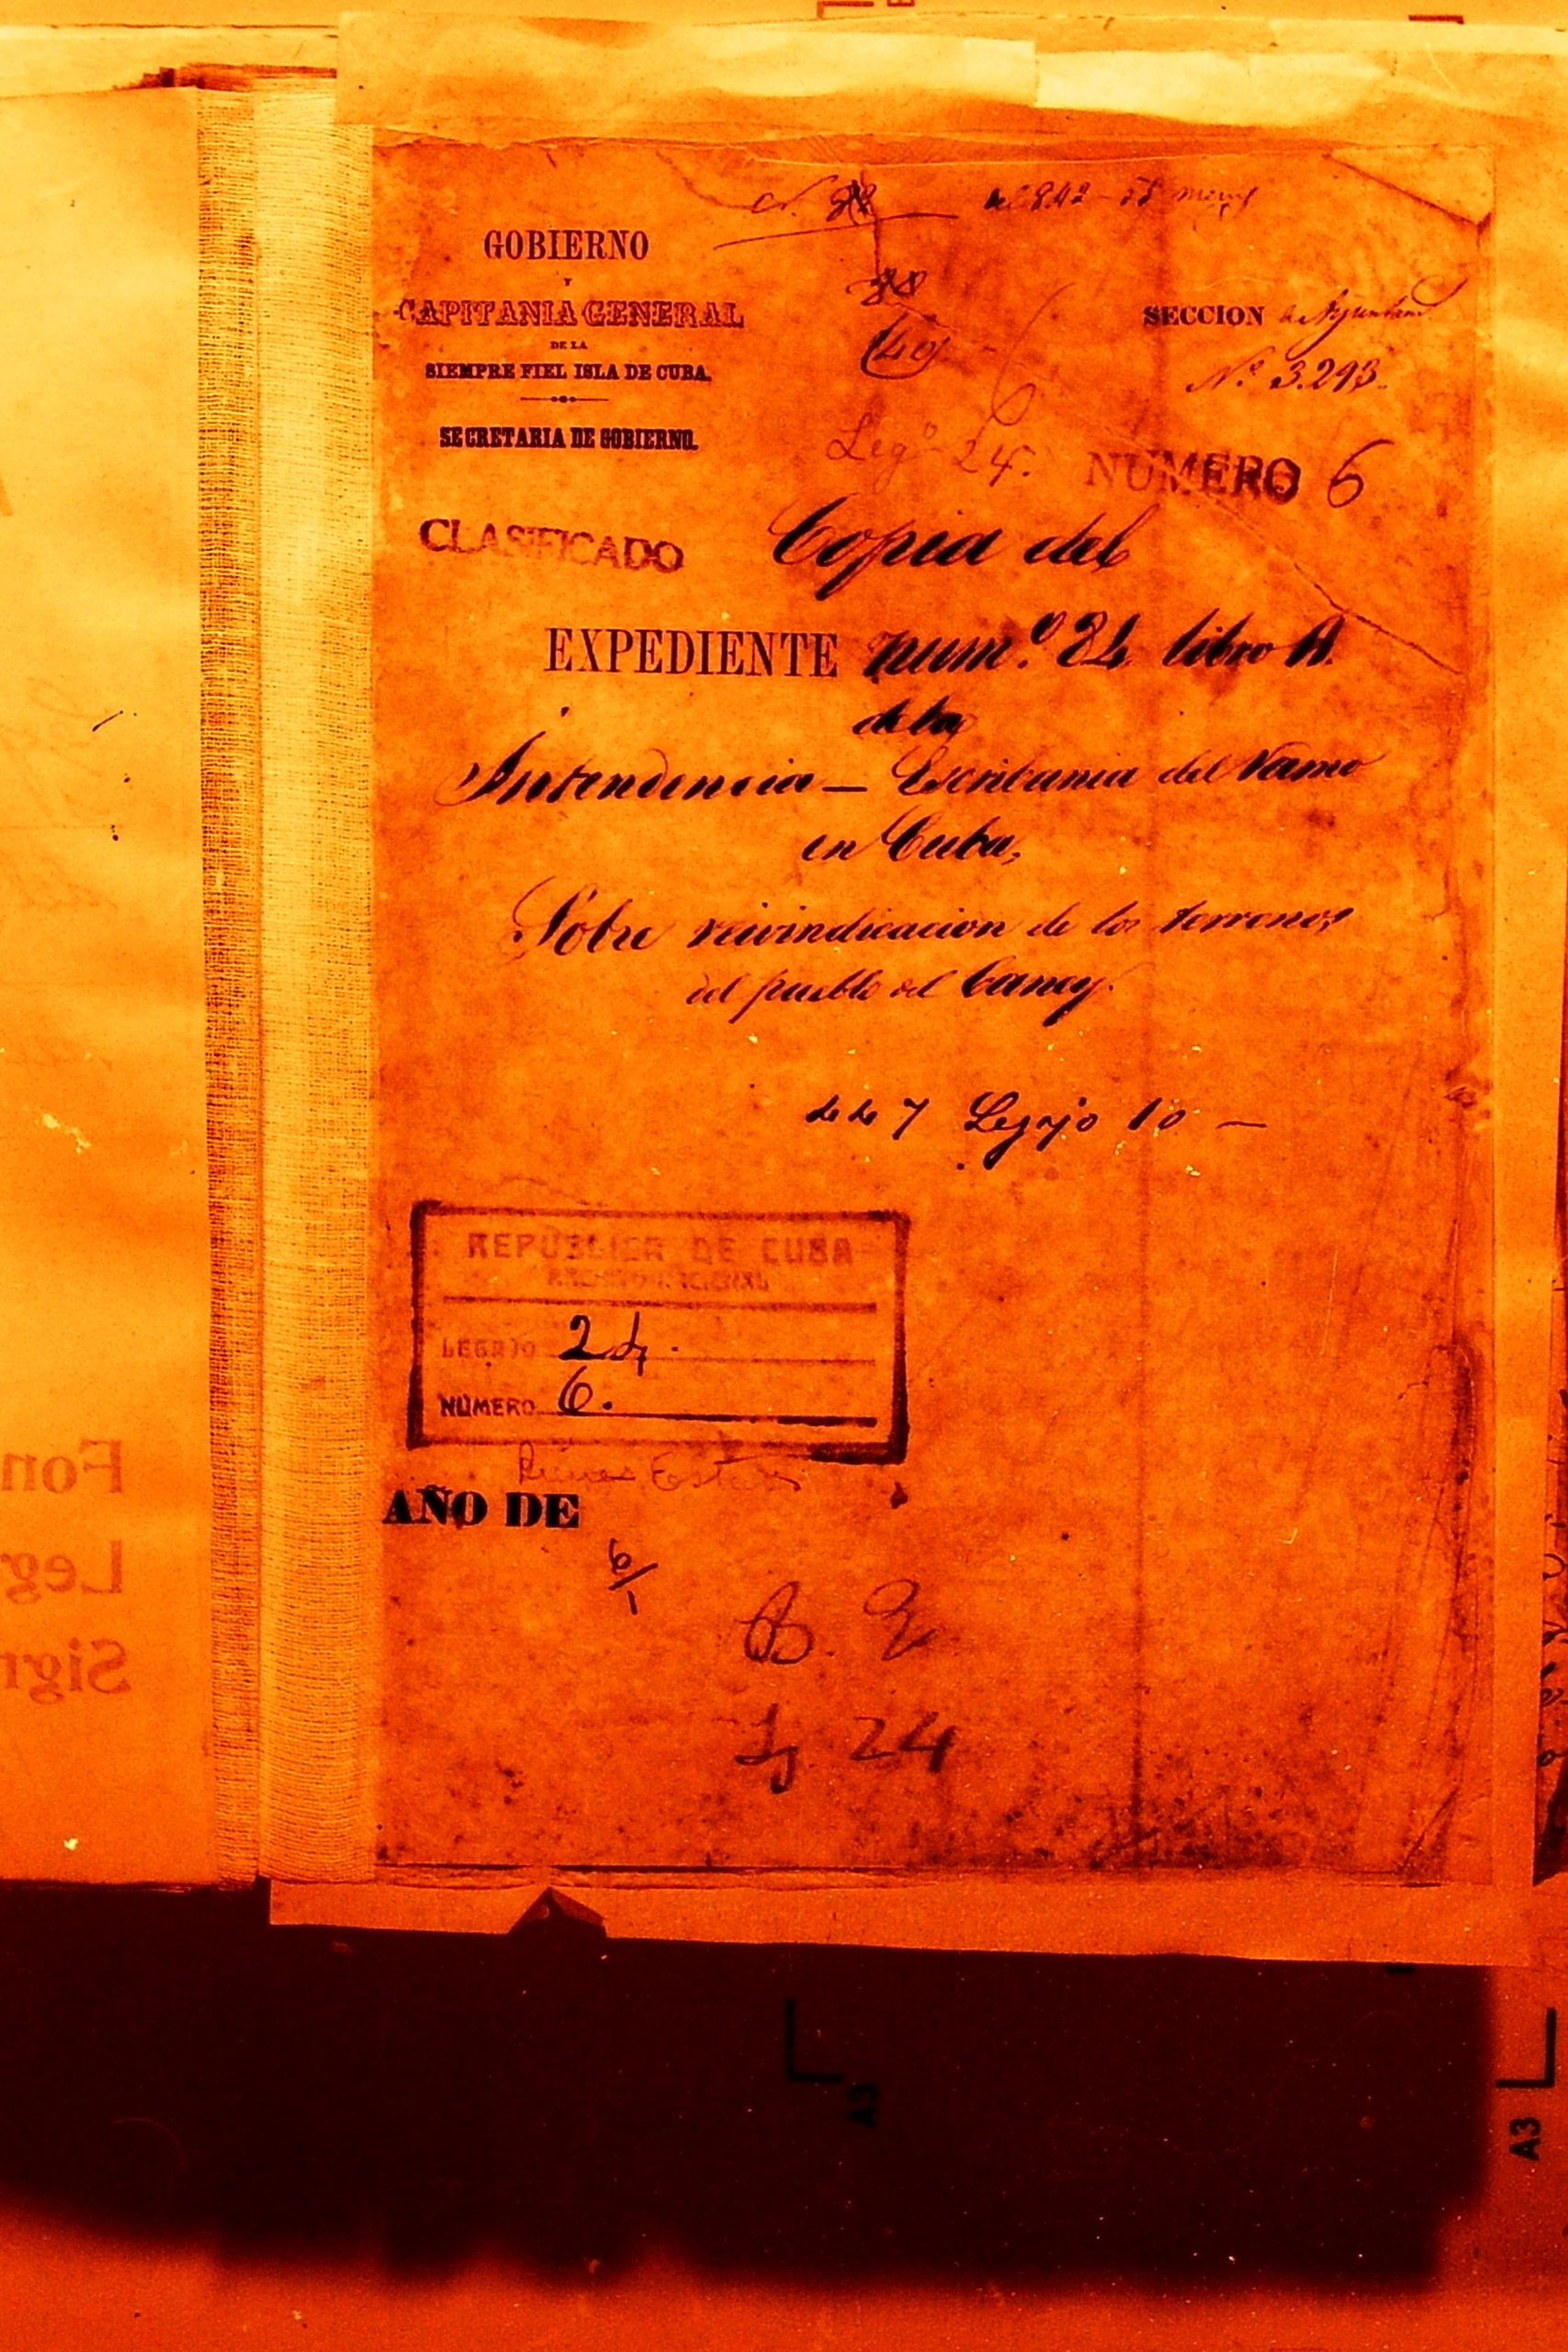 GOBIERNO
Y
CAPITANIA GENERAL
DE LA
SIEMPRE FIEL ISLA DE CUBA.
SECRETARIA DE GOBIERNO.
SECCION de Ayuntam
Nº 3.293.
40
Legº 24.
NUMERO 6
CLASIFICADO
Copia del
EXPEDIENTE numº 84 libro A.
de la
Intendencia — Escribania del Ramo
en Cuba,
Sobre reivindicacion de los terrenos
del pueblo del Caney.
7 Legajo 10 —
REPUBLICA DE CUBA
ARCHIVO NACIONAL
LEGAJO 24.
NUMERO 6.
AÑO DE
6/1
B. E
Lg 24
Fon
Leg
Sign
A3
A3